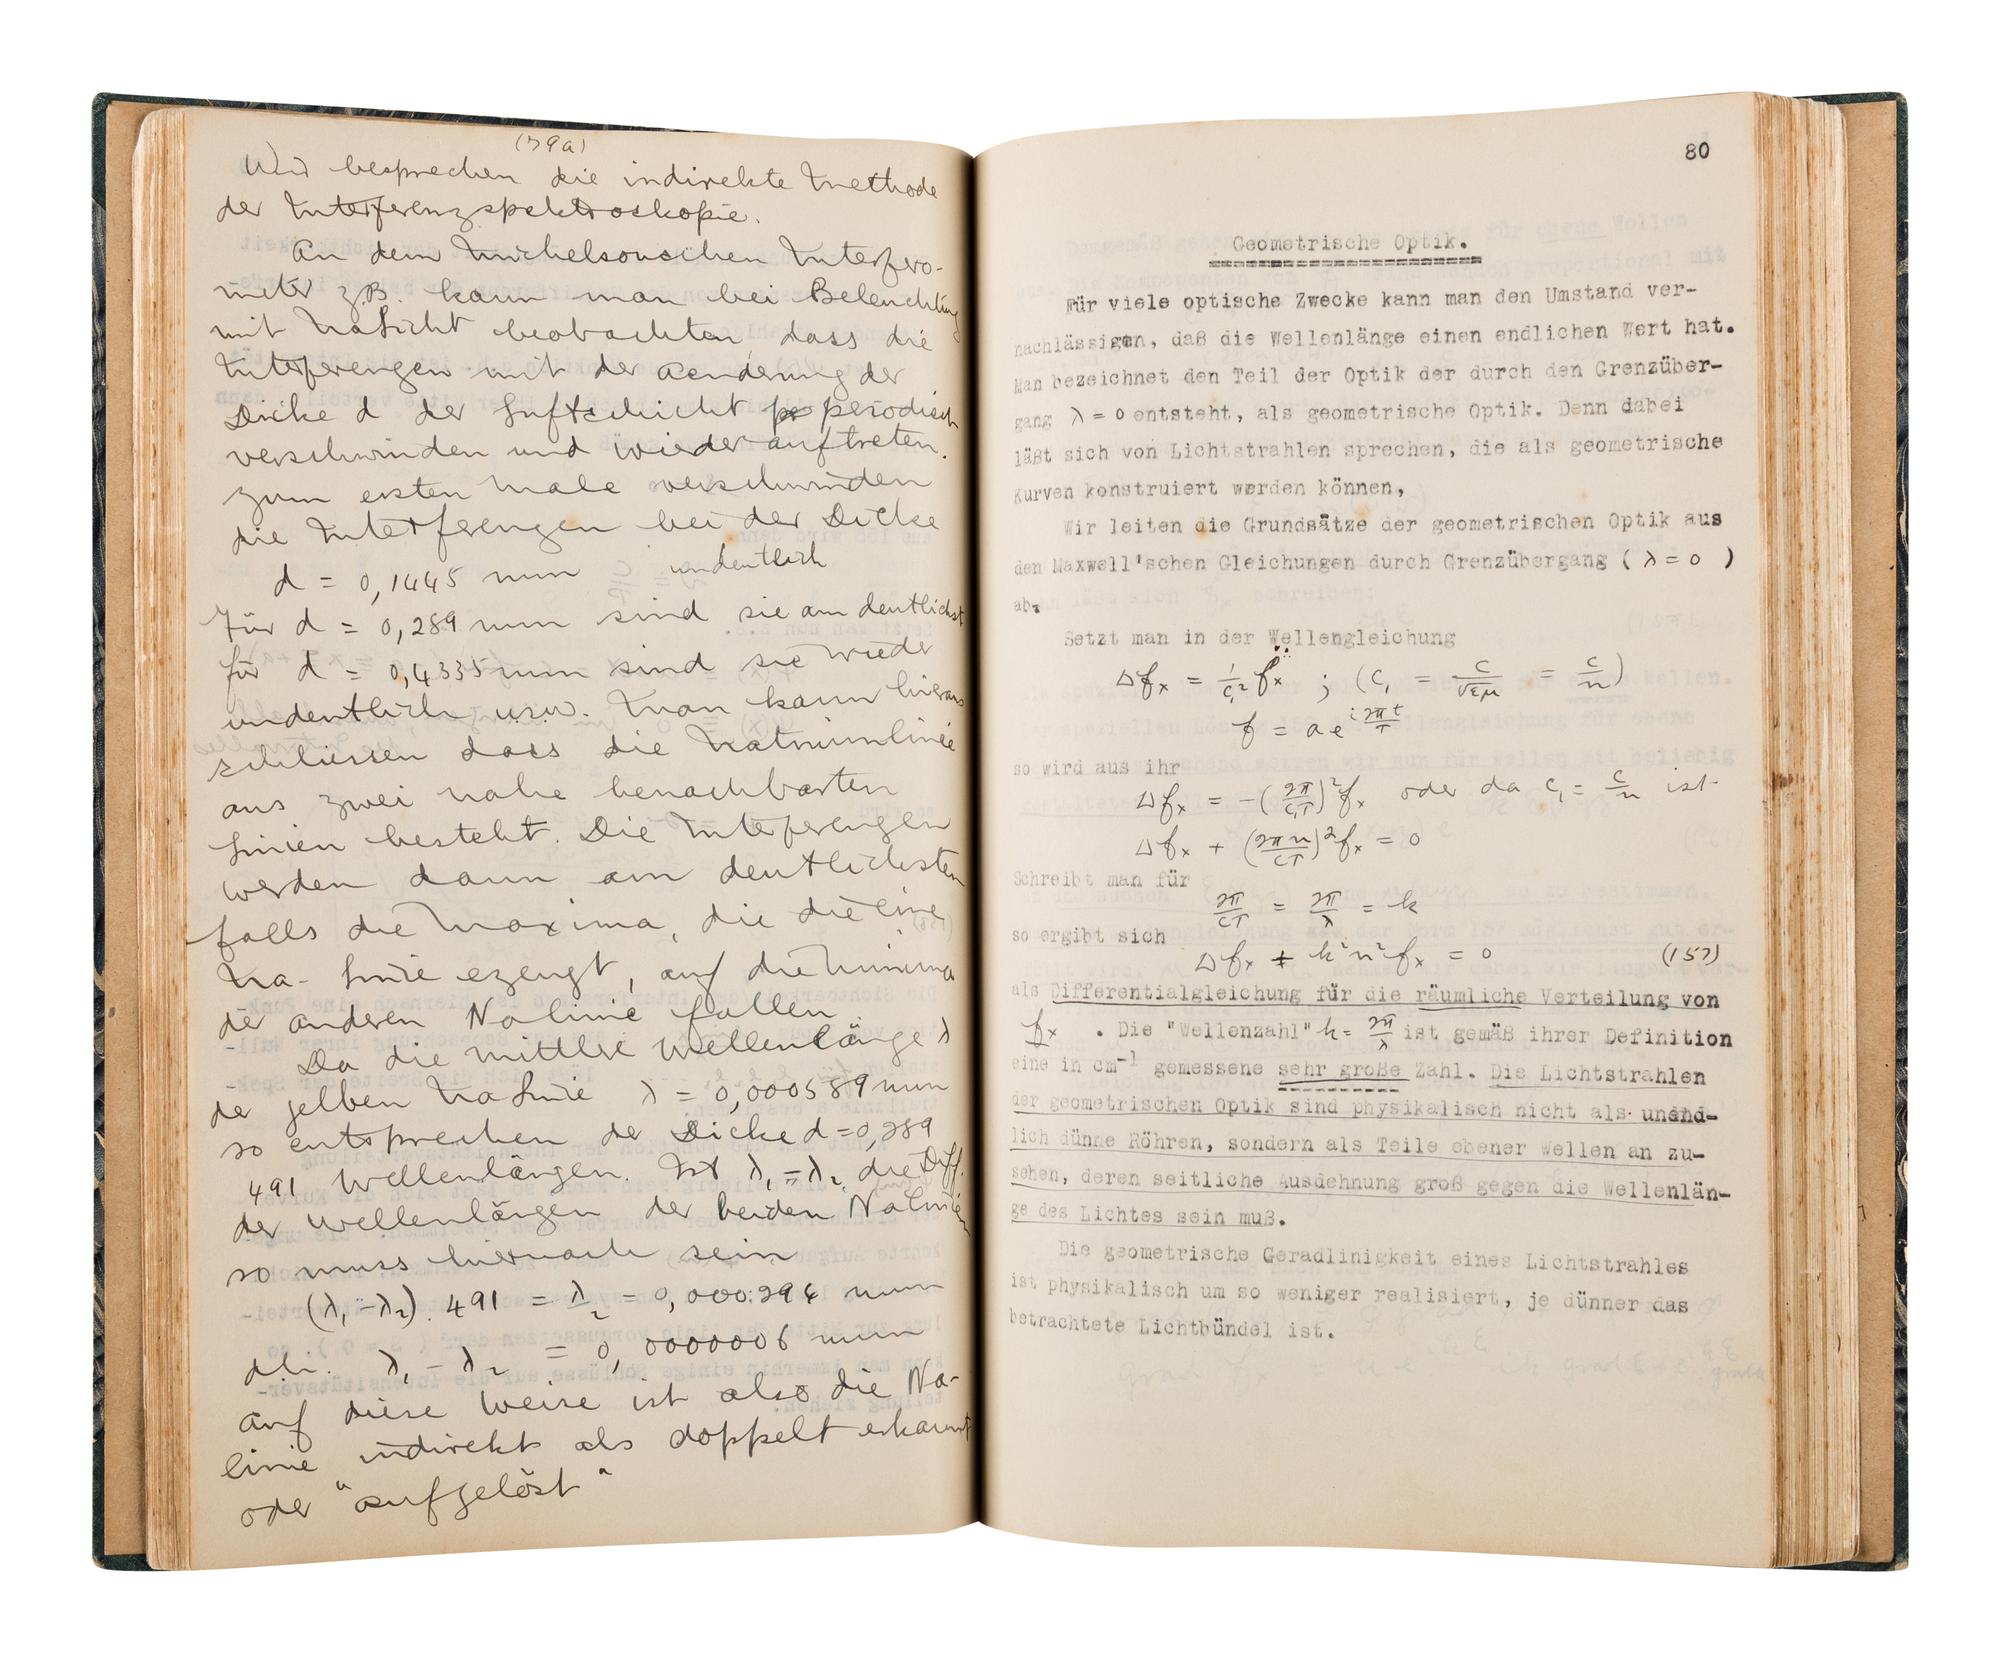 (79a)
Wir besprechen die indirekte Methode
der Interferenzspektroskopie.
An dem Michelsonschen Interfero-
meter z.B. kann man bei Beleuchtung
mit NaLicht beobachten dass die
Interferenzen mit der Aenderung der
Dicke d der Luftschicht periodisch
verschwinden und wieder auftreten.
Zum ersten Male verschwinden
die Interferenzen bei der Dicke
d = 0,1445 mm undeutlich
Für d = 0,289 mm sind sie am deutlichst
für d = 0,4335 mm sind sie wieder
undeutlich usw. Man kann hieraus
schliessen dass die Natriumlinie
aus zwei nahe benachbarten
Linien besteht. Die Interferenzen
werden dann am deutlichsten
falls die Maxima, die die eine
Na-Linie ezeugt, auf die Minima
der anderen Nalinie fallen.
Da die mittlere Wellenlänge λ
der gelben NaLinie λ = 0,000589 mm
so entsprechen der Dicke d=0,289
491 Wellenlängen. Ist λ₁-λ₂ die Diff.
der Wellenlängen der beiden Nalinien
so muss hiernach sein
(λ₁-λ₂). 491 = λ/2 = 0,000294 mm
d.h. λ₁ - λ₂ = 0,0000006 mm
Auf diese Weise ist also die Na-
linie indirekt als doppelt erkannt
oder "aufgelöst"
80
Geometrische Optik.
Für viele optische Zwecke kann man den Umstand ver-
nachlässigen, daß die Wellenlänge einen endlichen Wert hat.
Man bezeichnet den Teil der Optik der durch den Grenzüber-
gang λ = 0 entsteht, als geometrische Optik. Denn dabei
läßt sich von Lichtstrahlen sprechen, die als geometrische
Kurven konstruiert werden können,
Wir leiten die Grundsätze der geometrischen Optik aus
den Maxwell'schen Gleichungen durch Grenzübergang ( λ = 0 )
ab.
Setzt man in der Wellengleichung
Δfₓ = 1/c₁² f̈ₓ ; (c₁ = c/√εμ = c/n)
f = a e^(i 2πt/T)
so wird aus ihr
Δfₓ = -(2π/c₁T)² fₓ oder da c₁ = c/n ist
Δfₓ + (2πn/cT)² fₓ = 0
Schreibt man für
2π/cT = 2π/λ = k
so ergibt sich
Δfₓ + k²n²fₓ = 0 (157)
als Differentialgleichung für die räumliche Verteilung von
fₓ . Die "Wellenzahl" k = 2π/λ ist gemäß ihrer Definition
eine in cm⁻¹ gemessene sehr große Zahl. Die Lichtstrahlen
der geometrischen Optik sind physikalisch nicht als unend-
lich dünne Röhren, sondern als Teile ebener Wellen an zu-
sehen, deren seitliche Ausdehnung groß gegen die Wellenlän-
ge des Lichtes sein muß.
Die geometrische Geradlinigkeit eines Lichtstrahles
ist physikalisch um so weniger realisiert, je dünner das
betrachtete Lichtbündel ist.